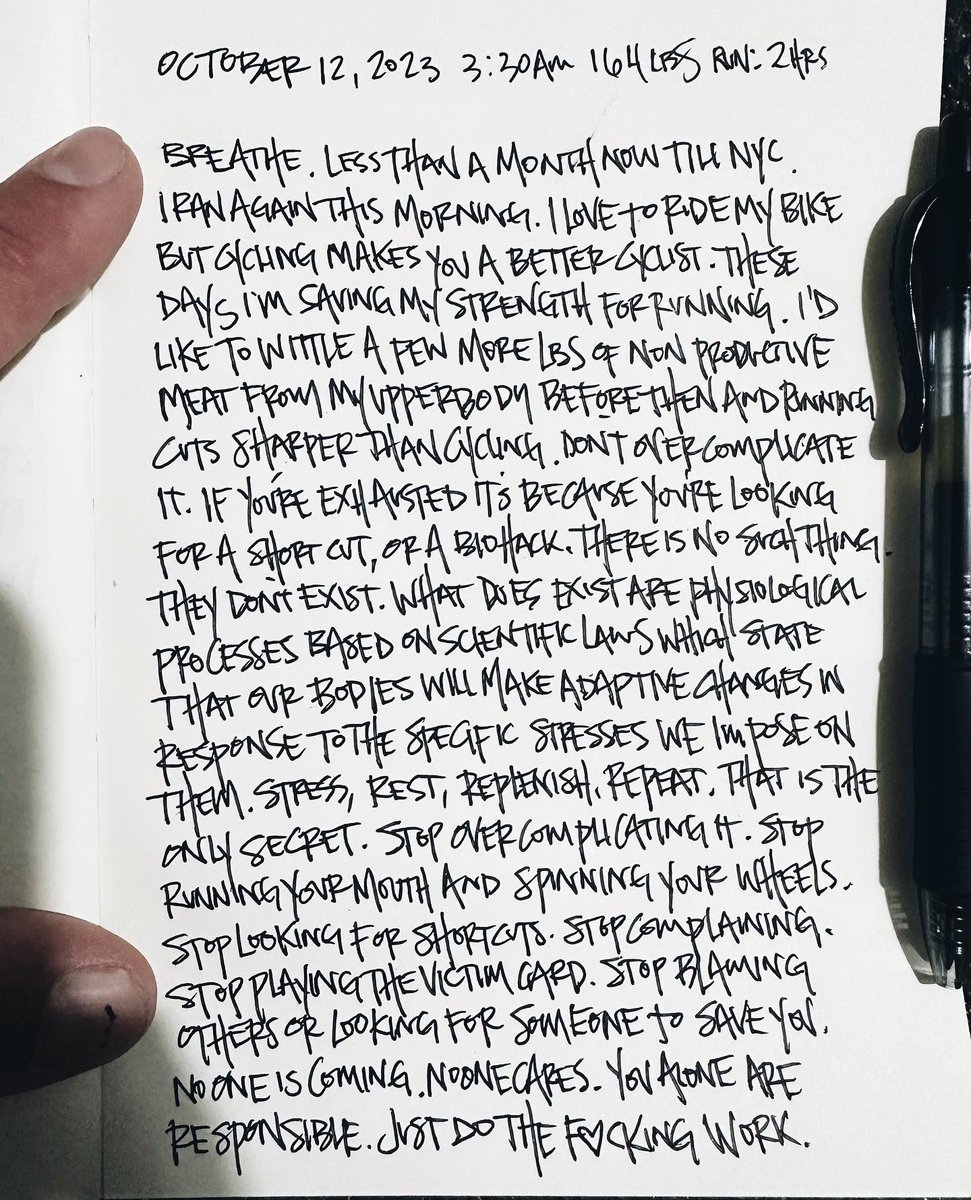 OCTOBER 12, 2023 3:30AM 164 LBS RUN: 2HRS
BREATHE. LESS THAN A MONTH NOW TILL NYC.
I RAN AGAIN THIS MORNING. I LOVE TO RIDE MY BIKE
BUT CYCLING MAKES YOU A BETTER CYCLIST. THESE
DAYS I'M SAVING MY STRENGTH FOR RUNNING. I'D
LIKE TO WITTLE A FEW MORE LBS OF NON PRODUCTIVE
MEAT FROM MY UPPERBODY BEFORE THEN AND RUNNING
CUTS SHARPER THAN CYCLING. DON'T OVER COMPLICATE
IT. IF YOU'RE EXHAUSTED IT'S BECAUSE YOU'RE LOOKING
FOR A SHORT CUT, OR A BIOHACK. THERE IS NO SUCH THING.
THEY DON'T EXIST. WHAT DOES EXIST ARE PHYSIOLOGICAL
PROCESSES BASED ON SCIENTIFIC LAWS WHICH STATE
THAT OUR BODIES WILL MAKE ADAPTIVE CHANGES IN
RESPONSE TO THE SPECIFIC STRESSES WE IMPOSE ON
THEM. STRESS, REST, REPLENISH. REPEAT. THAT IS THE
ONLY SECRET. STOP OVER COMPLICATING IT. STOP
RUNNING YOUR MOUTH AND SPINNING YOUR WHEELS.
STOP LOOKING FOR SHORTCUTS. STOP COMPLAINING.
STOP PLAYING THE VICTIM CARD. STOP BLAMING
OTHERS OR LOOKING FOR SOMEONE TO SAVE YOU.
NO ONE IS COMING. NO ONE CARES. YOU ALONE ARE
RESPONSIBLE. JUST DO THE F♡CKING WORK.